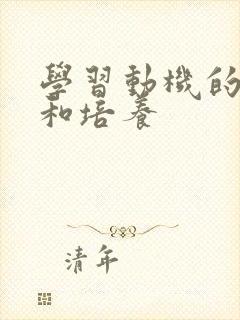 學習動機的
和培養
清年